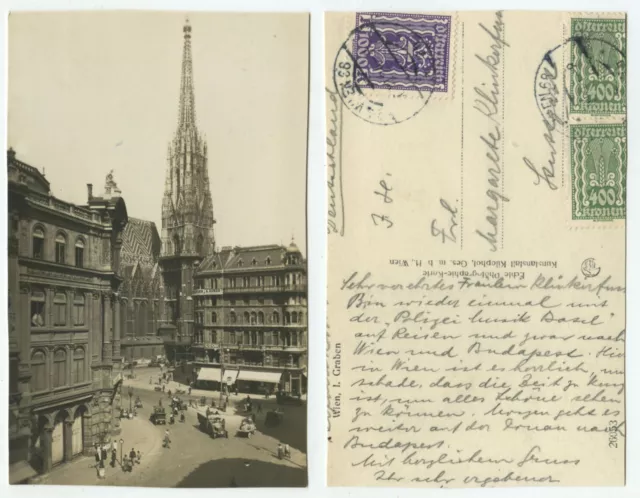 Wien, I. Graben
26053
Echte Photographie-Karte
Kunstanstalt Kilophot, Ges. m. b. H. Wien
österreich
1000
österreich
400
Kronen
österreich
400
Kronen
Deutschland
Frl.
Margarete Klinkerfuss
Sehr verehrtes Fräulein Klinkerfuss
Bin wieder einmal mit
der "Polizei Musik Basel"
auf Reisen und zwar nach
Wien und Budapest. Hier
in Wien ist es herrlich, nur
schade, dass die Zeit zu kurz
ist, um alles Schöne sehen
zu können. Morgen geht es
weiter auf der Donau nach
Budapest.
Mit herzlichem Gruss
Ihr sehr ergebener